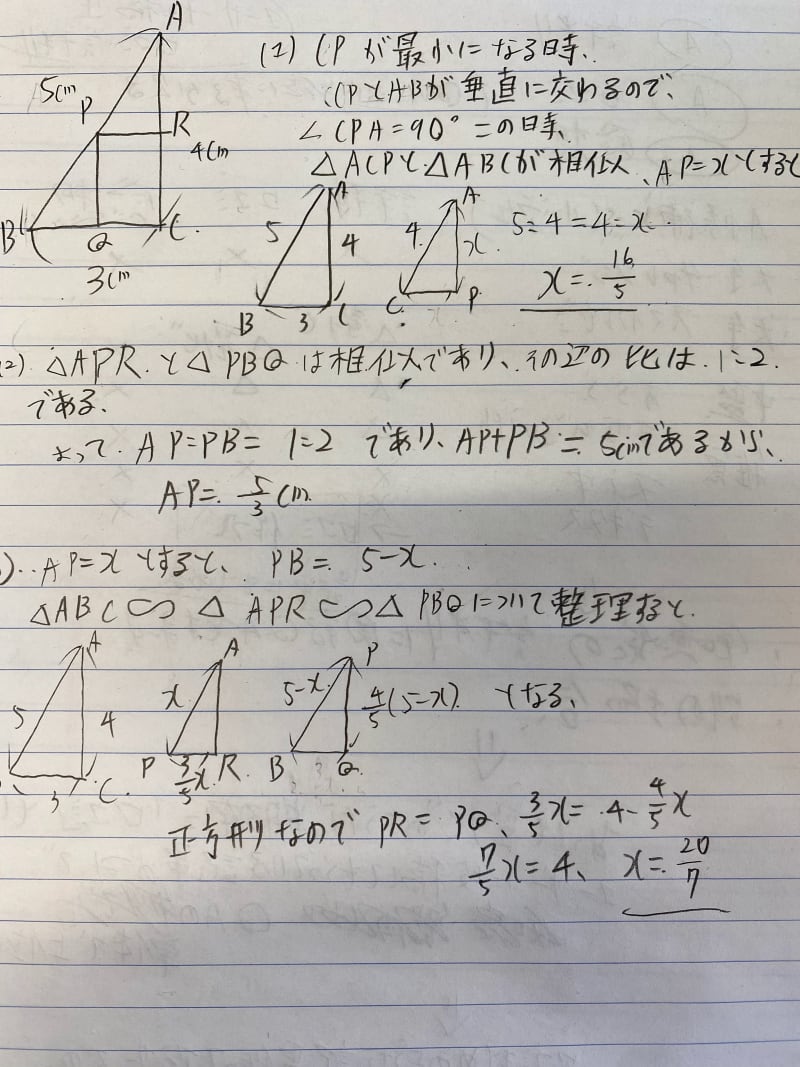 A
5cm
P
R
4cm
B
Q
C
3cm
(1) CPが最小になる時、
CPとABが垂直に交わるので、
∠CPA=90° この時、
△ACPと△ABCが相似、AP=xとすると
A
5
4
B
3
C
A
4
x
C
P
5:4=4:x
x=16/5
(2) △APRと△PBQは相似であり、その辺の比は1:2
である。
よって AP:PB=1:2 であり、AP+PB=5cmであるから、
AP=5/3cm
AP=xとすると、 PB=5-x
△ABC∽△APR∽△PBQについて整理すると
A
5
4
3
C
A
x
P
3/5x
R
P
5-x
4/5(5-x)
B
Q
となる、
正方形なので PR=PQ、3/5x=4-4/5x
7/5x=4、 x=20/7